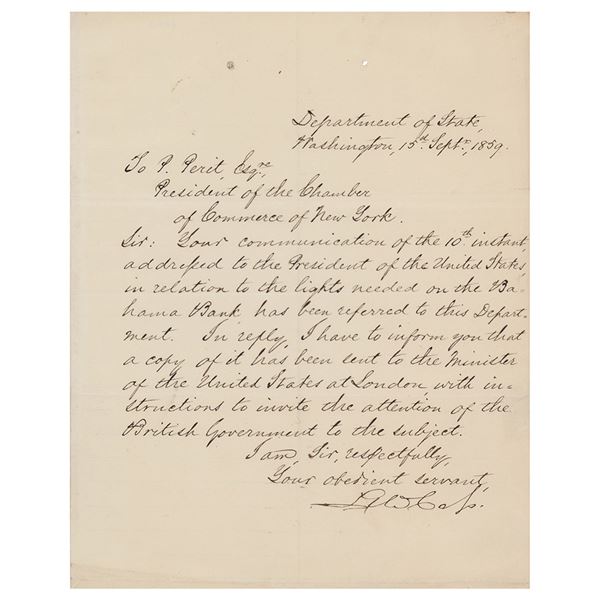 Department of State,
Washington, 15th Septr, 1859.
To P. Perit, Esqre,
President of the Chamber
of Commerce of New York.
Sir: Your communication of the 10th instant,
addressed to the President of the United States,
in relation to the lights needed on the Ba-
hama Bank has been referred to this Depart-
ment. In reply, I have to inform you that
a copy of it has been sent to the Minister
of the United States at London, with in-
structions to invite the attention of the
British Government to the subject.
I am, Sir, respectfully,
Your obedient servant,
Lew Cass.